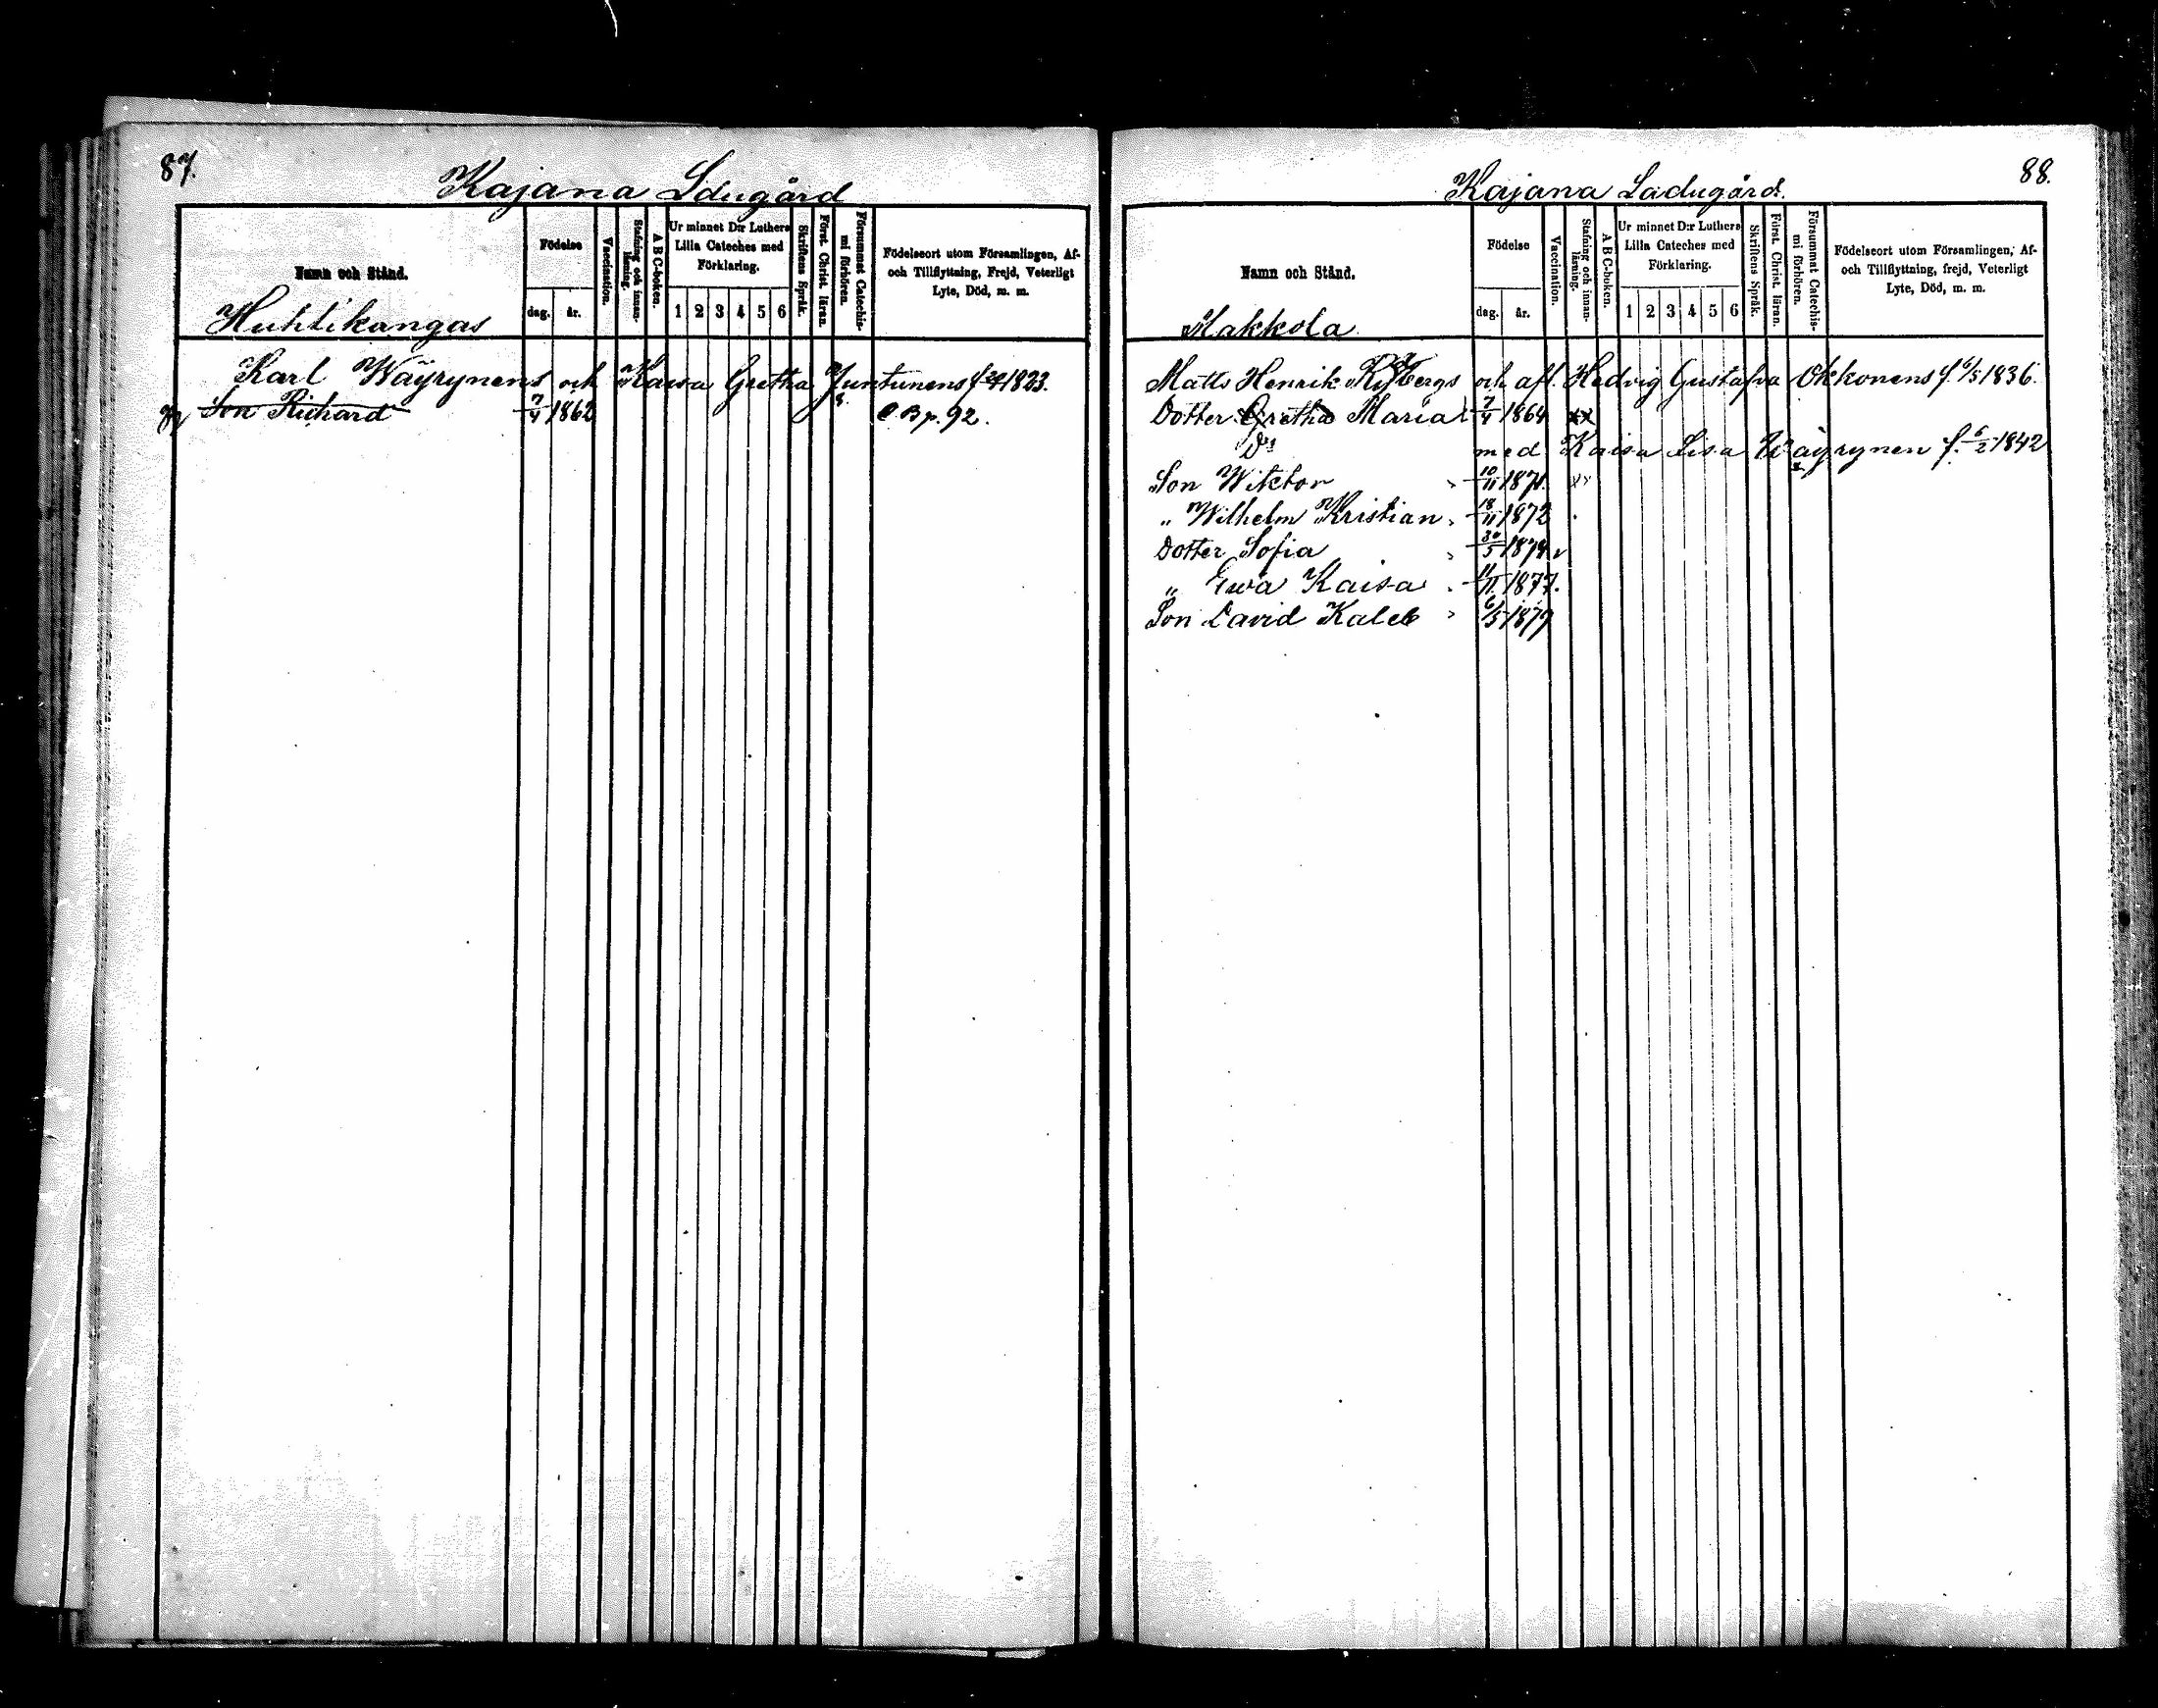 87.
Kajana Ldugård
Namn och Stånd.
Huhtikangas
Födelse
dag. år.
Vaccination.
Stafning och innan-
läsning.
A B C-boken.
Ur minnet D:r Luthers
Lilla Cateches med
Förklaring.
1 2 3 4 5 6
Skriftens Språk.
Först. Christ. läran.
Försummat Catechis-
mi förhören.
Födelseort utom Församlingen, Af-
och Tillflyttning, Frejd, Veterligt
Lyte, Död, m. m.
Karl Wäyrynens och Kaisa Gretha Juntunens f. 1823.
Son Richard 7/4 1862 C B p. 92.
88.
Kajana Ladugård.
Namn och Stånd.
Makkola
Födelse
dag. år.
Vaccination.
Stafning och innan-
läsning.
A B C-boken.
Ur minnet D:r Luthers
Lilla Cateches med
Förklaring.
1 2 3 4 5 6
Skriftens Språk.
Först. Christ. läran.
Försummat Catechis-
mi förhören.
Födelseort utom Församlingen, Af-
och Tillflyttning, frejd, Veterligt
Lyte, Död, m. m.
Matts Henrik och afl. Hedvig Gustafva Okkonens f. 6/5 1836.
Dotter Gretha Maria 7/4 1864 xx
Ds med Kaisa Lisa Wäyrynen f. 6/2 1842
Son Wiktor 10/11 1871. xx
" Wilhelm Kristian 18/11 1872
Dotter Sofia 30/5 1874
" Ewa Kaisa 11/11 1877.
Son David Kaleb 6/5 1879